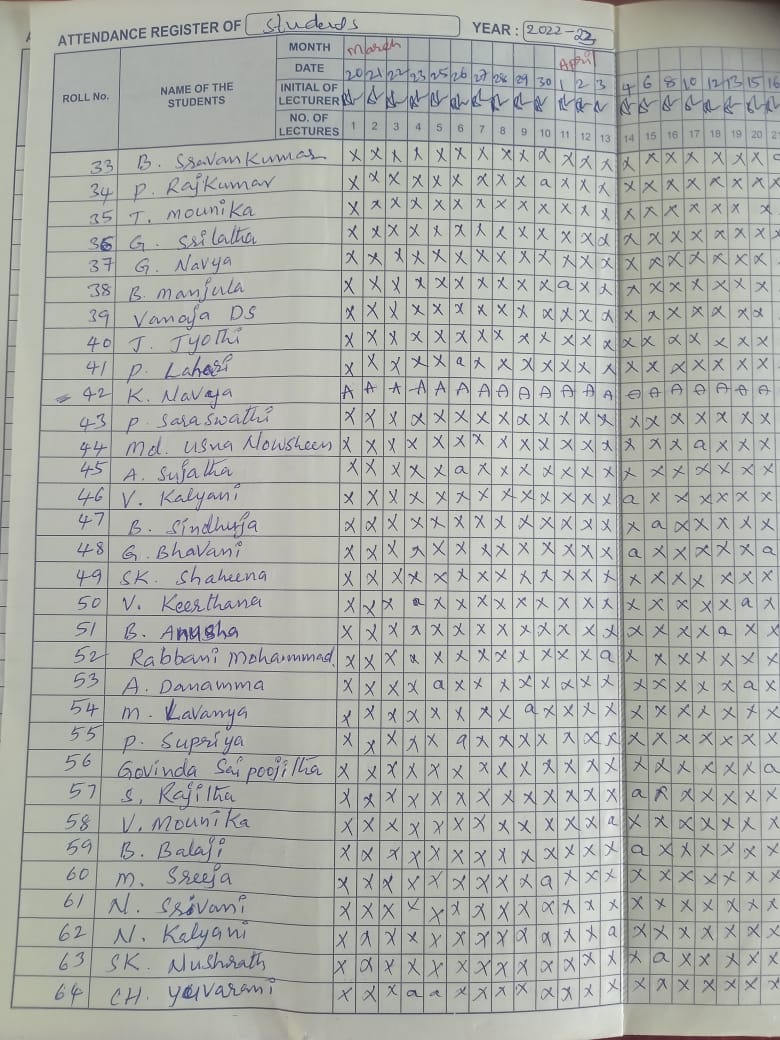 ATTENDANCE REGISTER OF Students YEAR : 2022-23
MONTH March April
DATE 20 21 22 23 25 26 27 28 29 30 1 2 3 4 6 8 10 12 13 15 16
ROLL No. NAME OF THE STUDENTS INITIAL OF LECTURER
NO. OF LECTURES 1 2 3 4 5 6 7 8 9 10 11 12 13 14 15 16 17 18 19 20 21
33 B. Sravan Kumar x x x x x x x x x x x x x x x x x x x x
34 P. Rajkumar x x x x x x x x x a x x x x x x x x x x
35 T. mounika x x x x x x x x x x x x x x x x x x x x
36 G. Srilatha x x x x x x x x x x x x x x x x x x x x
37 G. Navya x x x x x x x x x x x x x x x x x x x x
38 B. manjula x x x x x x x x x x a x x x x x x x x x
39 Vanaja DS x x x x x x x x x x x x x x x x x x x x
40 J. Jyothi x x x x x x x x x x x x x x x x x x x x
41 P. Lahari x x x x x a x x x x x x x x x x x x x x
42 K. Navya A A A A A A A A A A A A A A A A A A A A
43 P. Saraswathi x x x x x x x x x x x x x x x x x x x x
44 Md. Usna Nowsheen x x x x x x x x x x x x x x x x a x x x
45 A. Sujatha x x x x x a x x x x x x x x x x x x x x
46 V. Kalyani x x x x x x x x x x x x x a x x x x x x
47 B. Sindhuja x x x x x x x x x x x x x x a x x x x x
48 G. Bhavani x x x x x x x x x x x x x a x x x x x a
49 SK. Shaheena x x x x x x x x x x x x x x x x x x x x
50 V. Keerthana x x x a x x x x x x x x x x x x x x a x
51 B. Anusha x x x x x x x x x x x x x x x x x a x x
52 Rabbani Mohammad x x x x x x x x x x x x a x x x x x x x
53 A. Danamma x x x x a x x x x x x x x x x x x x a x
54 M. Lavanya x x x x x x x x a x x x x x x x x x x x
55 P. Supriya x x x x x a x x x x x x x x x x x x x x
56 Govinda Sai poojitha x x x x x x x x x x x x x x x x x x x a
57 S. Rajitha x x x x x x x x x x x x x a x x x x x x
58 V. Mounika x x x x x x x x x x x x a x x x x x x x
59 B. Balaji x x x x x x x x x x x x x a x x x x x x
60 M. Sreeja x x x x x x x x x a x x x x x x x x x x
61 N. Srivani x x x x x x x x x x x x x x x x x x x x
62 N. Kalyani x x x x x x x x x x x x a x x x x x x x
63 SK. Nushrath x x x x x x x x x x x x x x a x x x x x
64 CH. Yuvarani x x x a a x x x x x x x x x x x x x x x